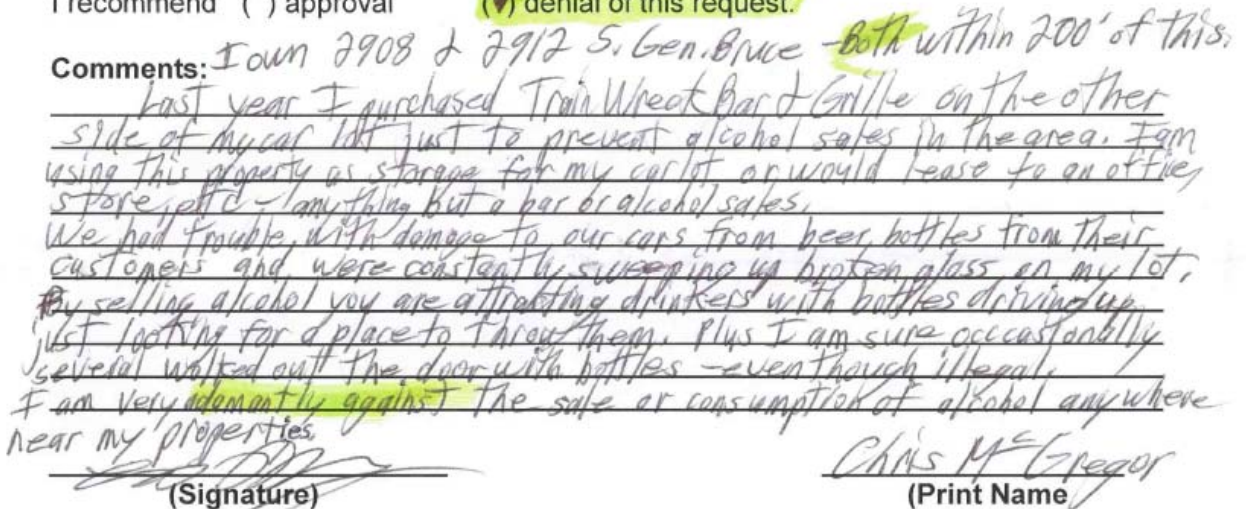 I recommend ( ) approval (♥) denial of this request.
I own 2908 & 2912 S. Gen. Bruce - Both within 200' of this.
Comments:
Last year I purchased Train Wreck Bar & Grille on the other
side of my car lot just to prevent alcohol sales in the area. I am
using this property as storage for my car lot or would lease to an office,
store, etc - anything but a bar or alcohol sales.
We had trouble with damage to our cars from beer bottles from their
customers and were constantly sweeping up broken glass on my lot.
By selling alcohol you are attrakting drinkers with bottles driving up
just looking for a place to throw them. Plus I am sure occcastonally
several walked out the door with bottles - even though illegal.
I am very adamantly against the sale or consumption of alcohol anywhere
near my properties.
Chris McGregor
(Signature) (Print Name